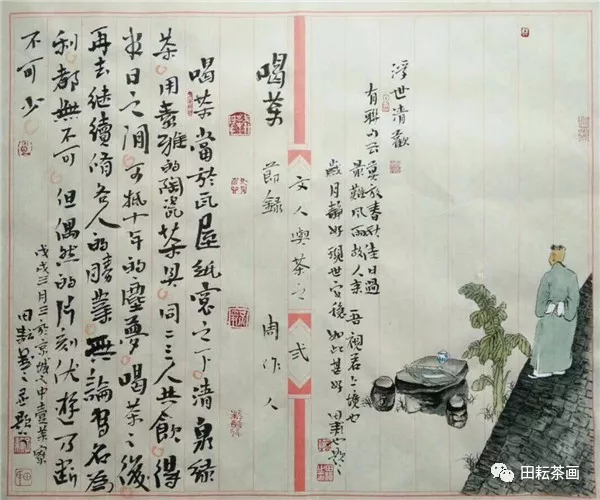 浮世清歡
莫放春秋佳日過
最難風雨故人來 吾視君之境也
歲月靜好現世安穩 如此甚好 田耘
文人與茶之 貳
喝茶
節録 周作人
喝茶當於瓦屋紙窗之下清泉緑
茶用素雅的陶瓷茶具同二三人共飲得
半日之閒可抵十年的塵夢喝茶之後
再去继續脩各人的勝業無論為名為
利都無不可但偶然的片刻优游乃断
不可少
戊戌三月三於京城
田耘
田耘茶画